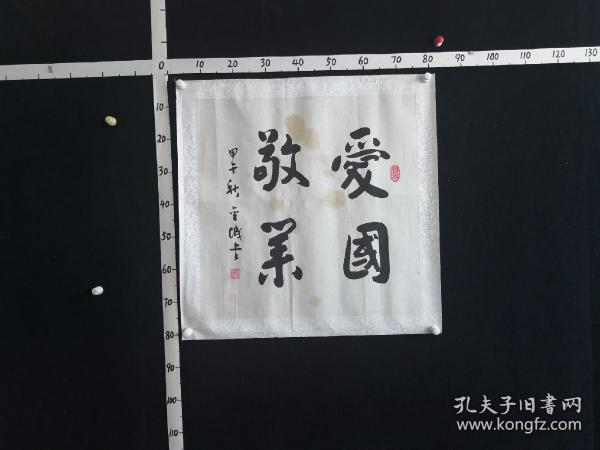 愛國
敬業
甲午秋
0 10 20 30 40 50 60 70 80 90 100 110 120 130
10
20
30
40
50
60
70
80
90
100
110
孔夫子旧書网
www.kongfz.com